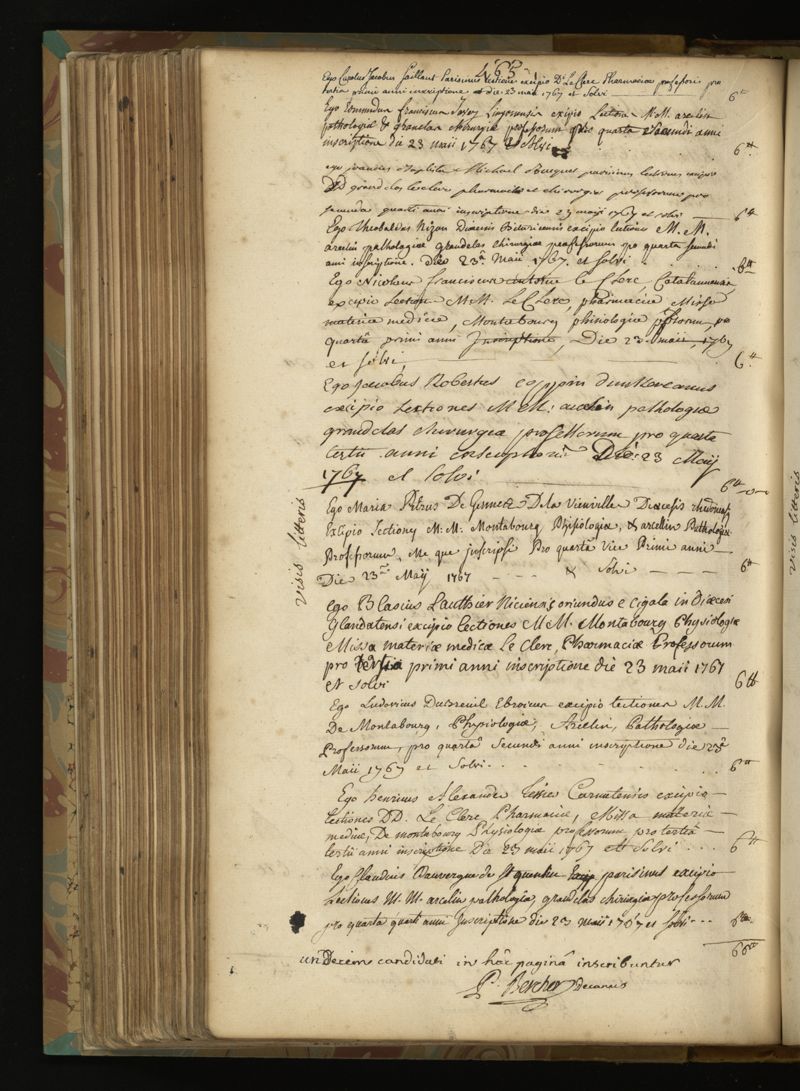 465
Ego Carolus Jacobus Saillant Parisinus lectiones excipio D. Le Clerc Pharmaciæ professoris pro
tertia primi anni inscriptione die 23 maii 1767 et solvi 6tt
Ego Edmundus franciscus Lingonensis excipio Lectiones M.M. arcelin
pathologiæ & grandclas chirurgiæ professorum pro quarta secundi anni
inscriptione die 23 maii 1767 & solvi 6tt
ego Baptista Michael parisinus lectiones excipio
DD grandclas leclerc pharmaciæ et chirurgiæ professorum pro
secunda quarti anni inscriptione die 23 maij 1767 et solvi 6tt
Ego Theobaldus Nizon Diœcesis Bituricensis excipio lectiones M.M.
arcelin pathologiæ grandclas chirurgiæ professorum pro quarta secundi
anni inscriptione. Die 23a Maii 1767. et solvi 6tt
Ego Nicolaus franciscus antoine le Clerc, Catalaunensis,
excipio Lectiones M.M. Le Clerc, pharmaciæ, Missa
materiæ medicæ, Montabourg phisiologiæ professorum, pro
quartâ primi anni Inscriptione, Die 23 maii, 1767
et solvi, 6tt
Ego Jacobus Robertus coppin dunkercanus
excipio Lectiones M M. arcelin pathologiæ
grandclas chirurgiæ professorum pro quarta
tertii anni inscriptione Die 23 Maij
1767 et solvi 6tt
visis litteris
Ego Maria Petrus De Gennes De la Vieuville Diœcesis rhedonensis
Excipio Lectiones M. M. Montabourg Phisiologiæ, & arcellin Pathologiæ
Professorum, Me que inscripsi Pro quartâ vice Primi anni
Die 23a Maij 1767 & Solvi 6tt
Ego Blasius Lauthier Niciensis oriundus e Cigala in diœcesi
Glandatensi excipio lectiones M M. Montabourg Physiologiæ
Missa materiæ medicæ Le Clerc, Pharmaciæ Professorum
pro tertia primi anni inscriptione die 23 maii 1767
et solvi 6tt
Ego Ludovicus Dubreuil Ebroicus excipio lectiones M.M.
De Montabourg, Physiologiæ, Arcelin, Pathologiæ
Professorum, pro quartâ Secundi anni inscriptione die 23a
Maii 1767 et Solvi 6tt
Ego henricus Alexander Carnutensis excipio
Lectiones DD. Le Clerc Pharmaciæ, Missa materiæ
medicæ, De montabourg Physiologiæ professorum pro tertia
tertii anni inscriptione Die 23 maii 1767 et solvi 6tt
Ego Claudius Dauvergne de St quentin parisinus excipio
Lectiones M. M. arcelin pathologiæ, grandclas chirurgiæ professorum
pro quarta quarti anni Inscriptione die 23 maii 1767 et solvi 6tt
undecim candidati in hâc paginâ inscribuntur 66tt
P. Bercher decanus
visis litteris